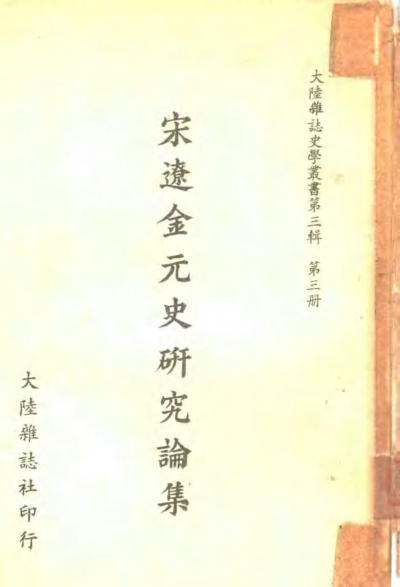 大陸雜誌史學叢書第三輯 第三册
宋遼金元史研究論集
大陸雜誌社印行